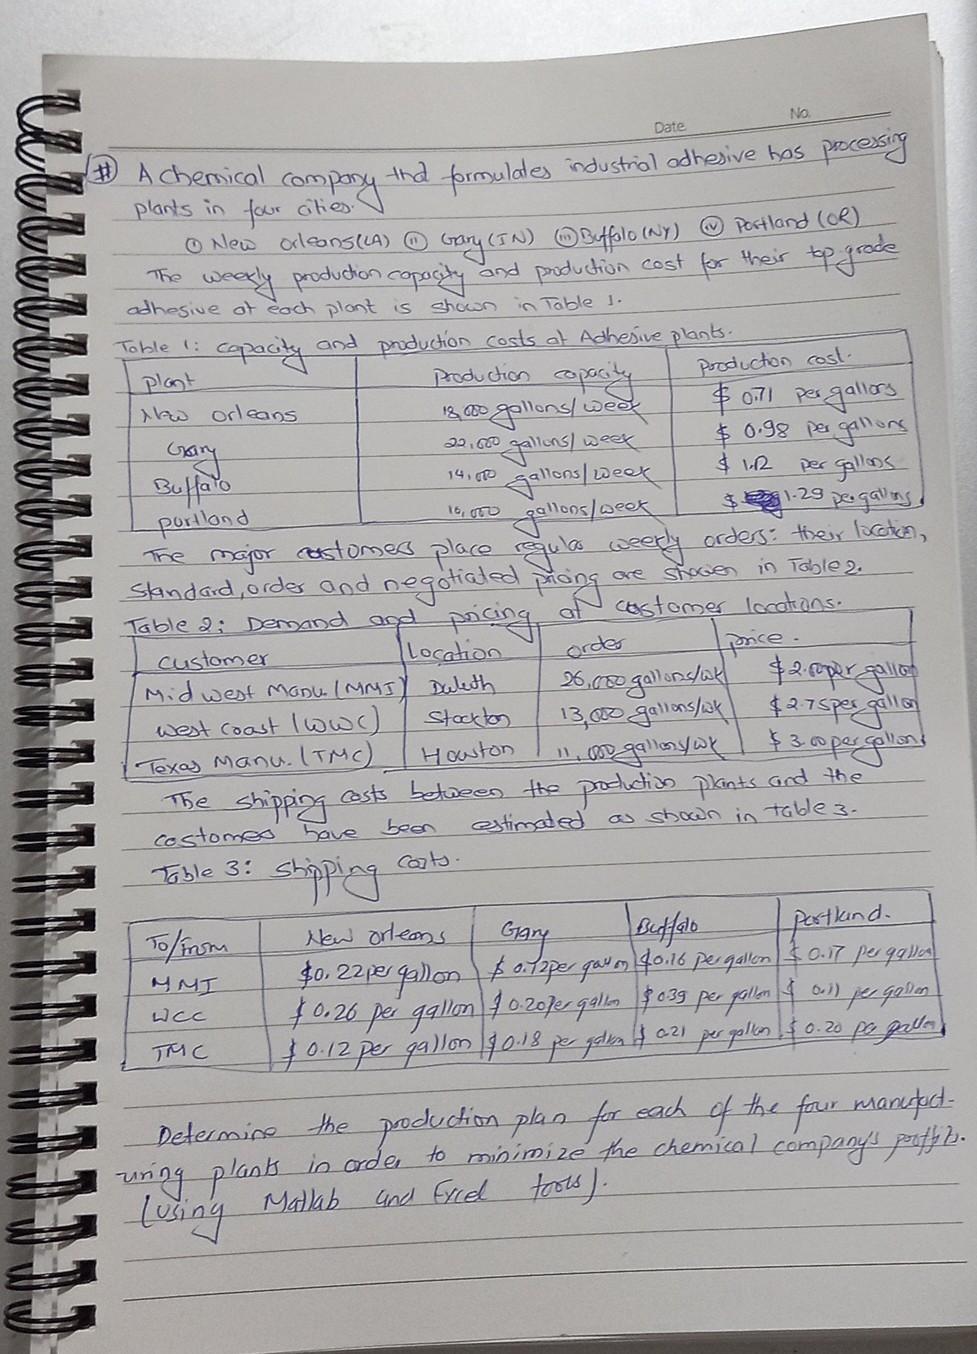 Date No.
(#) A chemical company that formulates industrial adhesive has processing
plants in four cities.
(i) New Orleans(LA) (ii) Gary(IN) (iii) Buffalo(NY) (iv) Portland(OR)
The weekly production capacity and production cost for their top-grade
adhesive at each plant is shown in Table 1.
Table 1: capacity and production costs at Adhesive plants.
Plant Production capacity Production cost.
New Orleans gallons/week $ 0.71 per gallons
Gary 22,000 gallons/week $ 0.98 per gallons
Buffalo 14,000 gallons/week $ 1.12 per gallons
portland gallons/week $ 1.29 per gallons
The major customers place regular weekly orders: their location,
standard, order and negotiated pricing are shown in Table 2.
Table 2: Demand and pricing at customer locations.
Customer Location order price.
Midwest Manu. (MMI) Duluth 26,000 gallons/wk per gallon
West Coast (WWC) Stockton 13,000 gallons/wk $ 2.75 per gallon
Texas Manu. (TMC) Houston 11,000 gallons/wk $ 3.00 per gallon
The shipping costs between the production plants and the
costomes have been estimated as shown in table 3.
Table 3: Shipping costs.
To/From New orleans Gary Buffalo portland.
MMI $0.22 per gallon per gallon $0.16 per gallon $ 0.17 per gallon
WCC $ 0.26 per gallon $ 0.20 per gallon $ 0.39 per gallon $ 0.11 per gallon
TMC $ 0.12 per gallon $0.18 per gallon $ 0.21 per gallon $ 0.20 per gallon
Determine the production plan for each of the four manufact-
uring plants in order to minimize the chemical company's profits.
(Using Matlab and Excel tools).